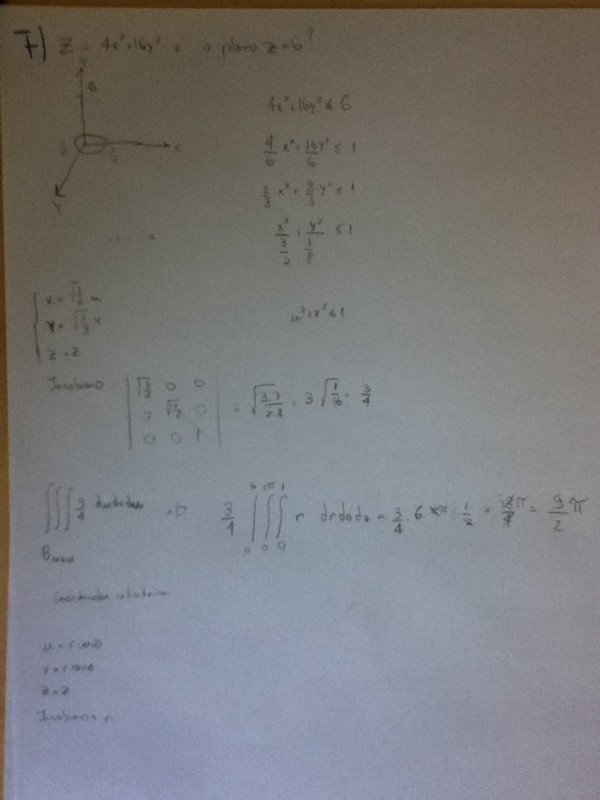 7) Z = 4x²+16y² e o plano z=6?
6
x
Y
4x²+16y² ≤ 6
4/6 x² + 16y²/6 ≤ 1
2/3 x² + 8/3 y² ≤ 1
x²/(3/2) + y²/(3/8) ≤ 1
z = z
u²+v² ≤ 1
Jacobiano | √(3/2) 0 0 |
0 0
0 0 1
= √(3.3/2.8) = 3 √(1/16) = 3/4
∭ 3/4 => 3/4 ∫₀⁶ ∫₀^2π ∫₀¹ r dr dθ dz = 3/4 . 6 . 2π . 1/2 = 18π/4 = 9/2 π
Coordenadas cilindricas
u = r cosθ
v = r senθ
z = z
Jacobiano = r